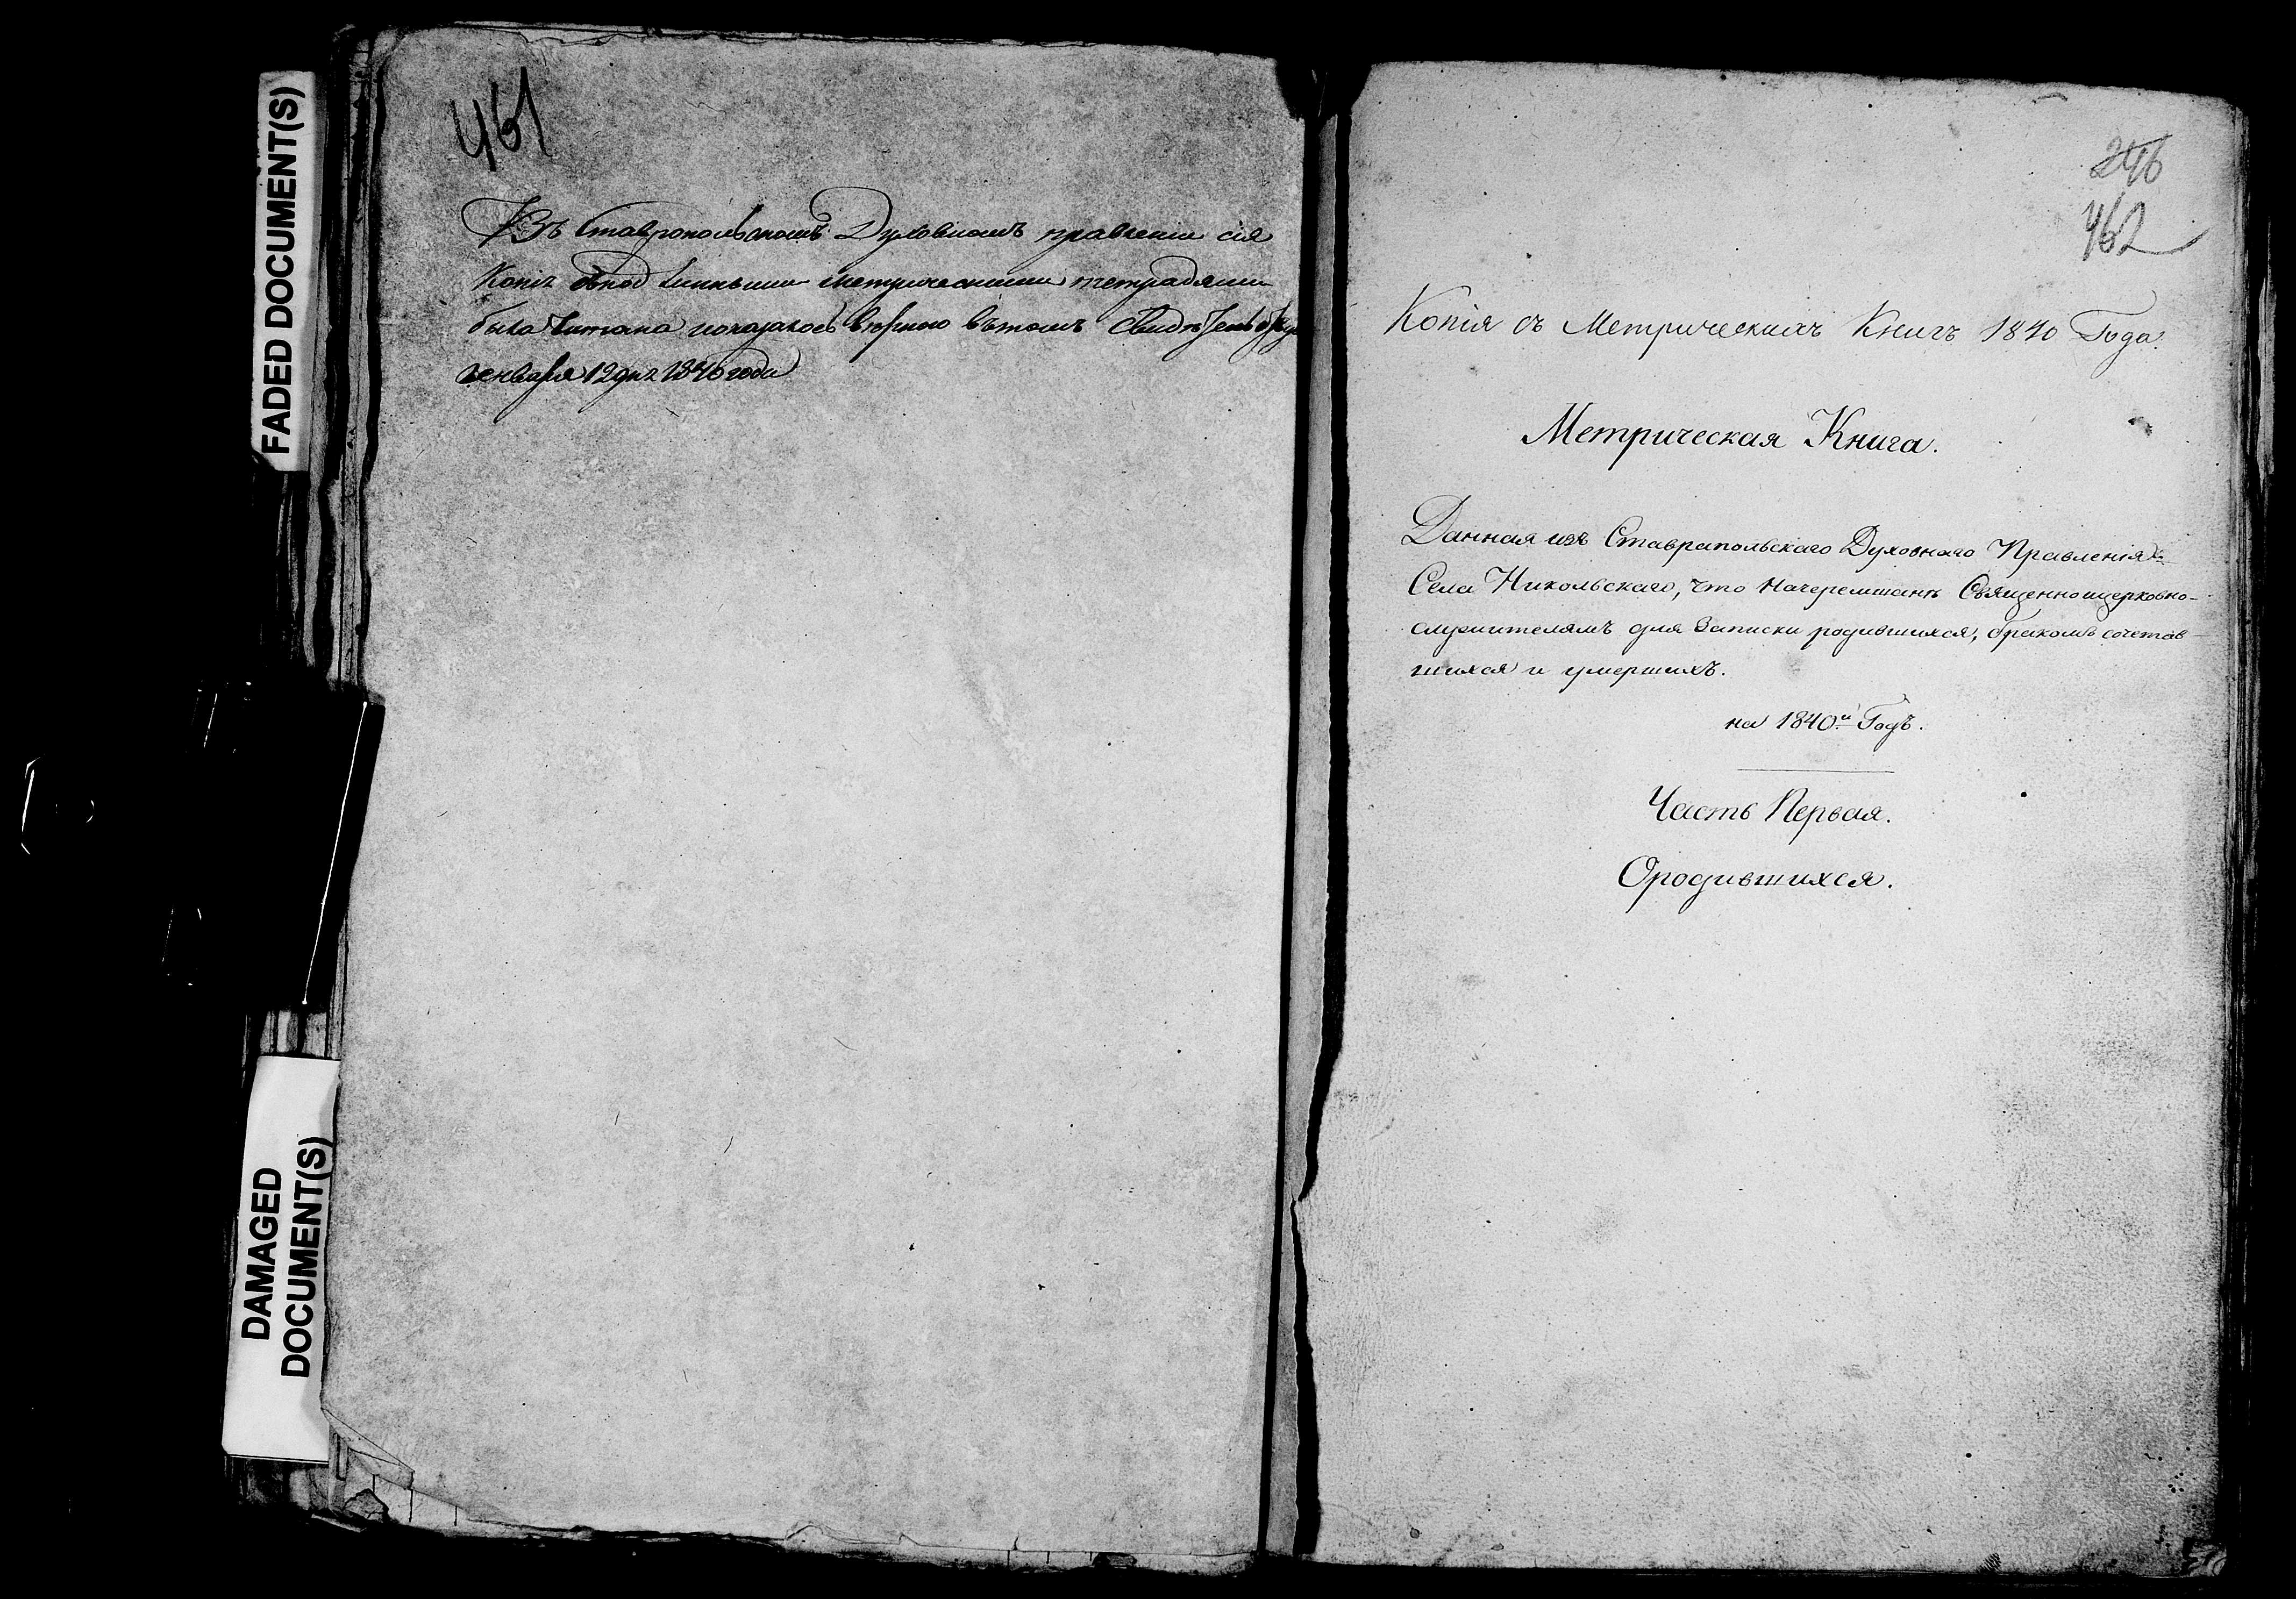 FADED DOCUMENT(S)
DAMAGED
DOCUMENT(S)
461
Въ Ставропольскомъ Духовномъ правленіи сія
Копія съ подлинными метрическими тетрадями
была читана показалось верною въ томъ
генваря 12 дня годa
246
462
Копія съ Метрическихъ Книгъ 1840 Года.
Метрическая Книга.
Данная изъ Ставрапольскаго Духовнаго Правленія
Села Никольскаго, что Начеремшанѣ Священноцерковно-
служителямъ для Записки родившихся, бракомъ сочетав-
шихся и умершихъ.
на 1840й Годъ.
Часть Первая.
Ородившихся.